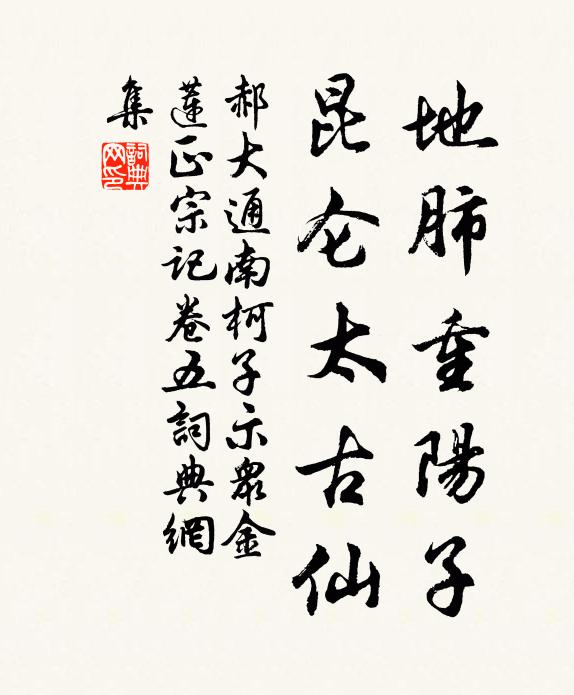 地肺重陽子
昆仑太古仙
郝大通南柯子示眾金
蓮正宗记卷五詞典網
集
詞典
网印